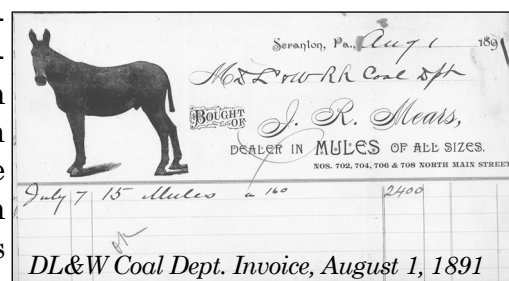 Scranton, Pa., Aug 1 1891
M D L & W RR Coal Dpt
BOUGHT OF
J. R. Mears,
DEALER IN MULES OF ALL SIZES.
NOS. 702, 704, 706 & 708 NORTH MAIN STREET
July 7 15 Mules a 160 2400
OK
DL&W Coal Dept. Invoice, August 1, 1891